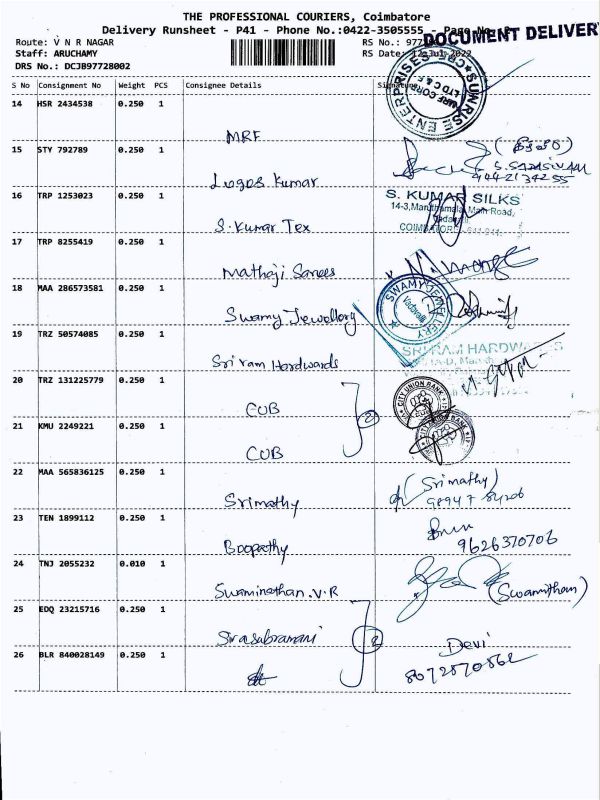 THE PROFESSIONAL COURIERS, Coimbatore
Delivery Runsheet - P41 - Phone No.:0422-3505555 - Page No.
DOCUMENT DELIVERY
Route: V N R NAGAR RS No.:
Staff: ARUCHAMY RS Date: 12-Jul-2022
DRS No.: DCJB97728002
S No Consignment No Weight PCS Consignee Details Signature
SUNRISE ENTERPRISES
14 HSR 2434538 0.250 1
MRF
15 STY 792789 0.250 1
Logos Kumar
S. SARASWATHI
9442134255
16 TRP 1253023 0.250 1
S. KUMAR SILKS
14-3, Maruthamalai Main Road,
Vadavalli,
COIMBATORE
S. Kumar Tex
17 TRP 8255419 0.250 1
Mathaji Sarees
18 MAA 286573581 0.250 1
SWAMY JEWELLERY
Vadavalli
Swamy Jewellery
19 TRZ 50574085 0.250 1
SRI RAM HARDWARES
Sri ram Hardwards
20 TRZ 131225779 0.250 1
CITY UNION BANK
CUB
2
21 KMU 2249221 0.250 1
CUB
22 MAA 565836125 0.250 1
(Srimathy)
Srimathy
23 TEN 1899112 0.250 1
Boopathy
9626370706
24 TNJ 2055232 0.010 1
Swaminathan.V.R
25 EDQ 23215716 0.250 1
Sivasubramani
2
Devi
26 BLR 840028149 0.250 1